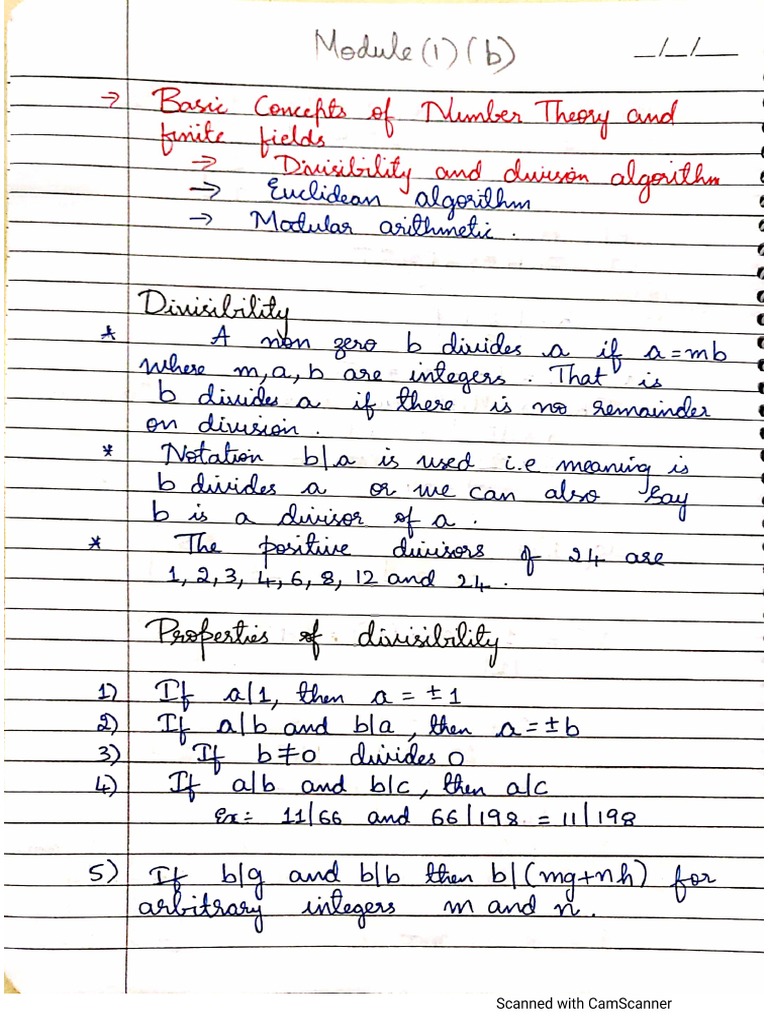 Module (1) (b)
_/_/__
→ Basic Concepts of Number Theory and
finite fields
→ Divisibility and division algorithm
→ Euclidean algorithm
→ Modular arithmetic .
Divisibility
* A non zero b divides a if a = mb
where m, a, b are integers . That is
b divides a if there is no remainder
on division .
* Notation b|a is used i.e meaning is
b divides a or we can also say
b is a divisor of a .
* The positive divisors of 24 are
1, 2, 3, 4, 6, 8, 12 and 24 .
Properties of divisibility
1) If a|1, then a = ±1
2) If a|b and b|a, then a = ±b
3) If b ≠ 0 divides 0
4) If a|b and b|c, then a|c
Ex:- 11/66 and 66/198 = 11/198
5) If b|g and b|b then b|(mg+nh) for
arbitrary integers m and n.
Scanned with CamScanner